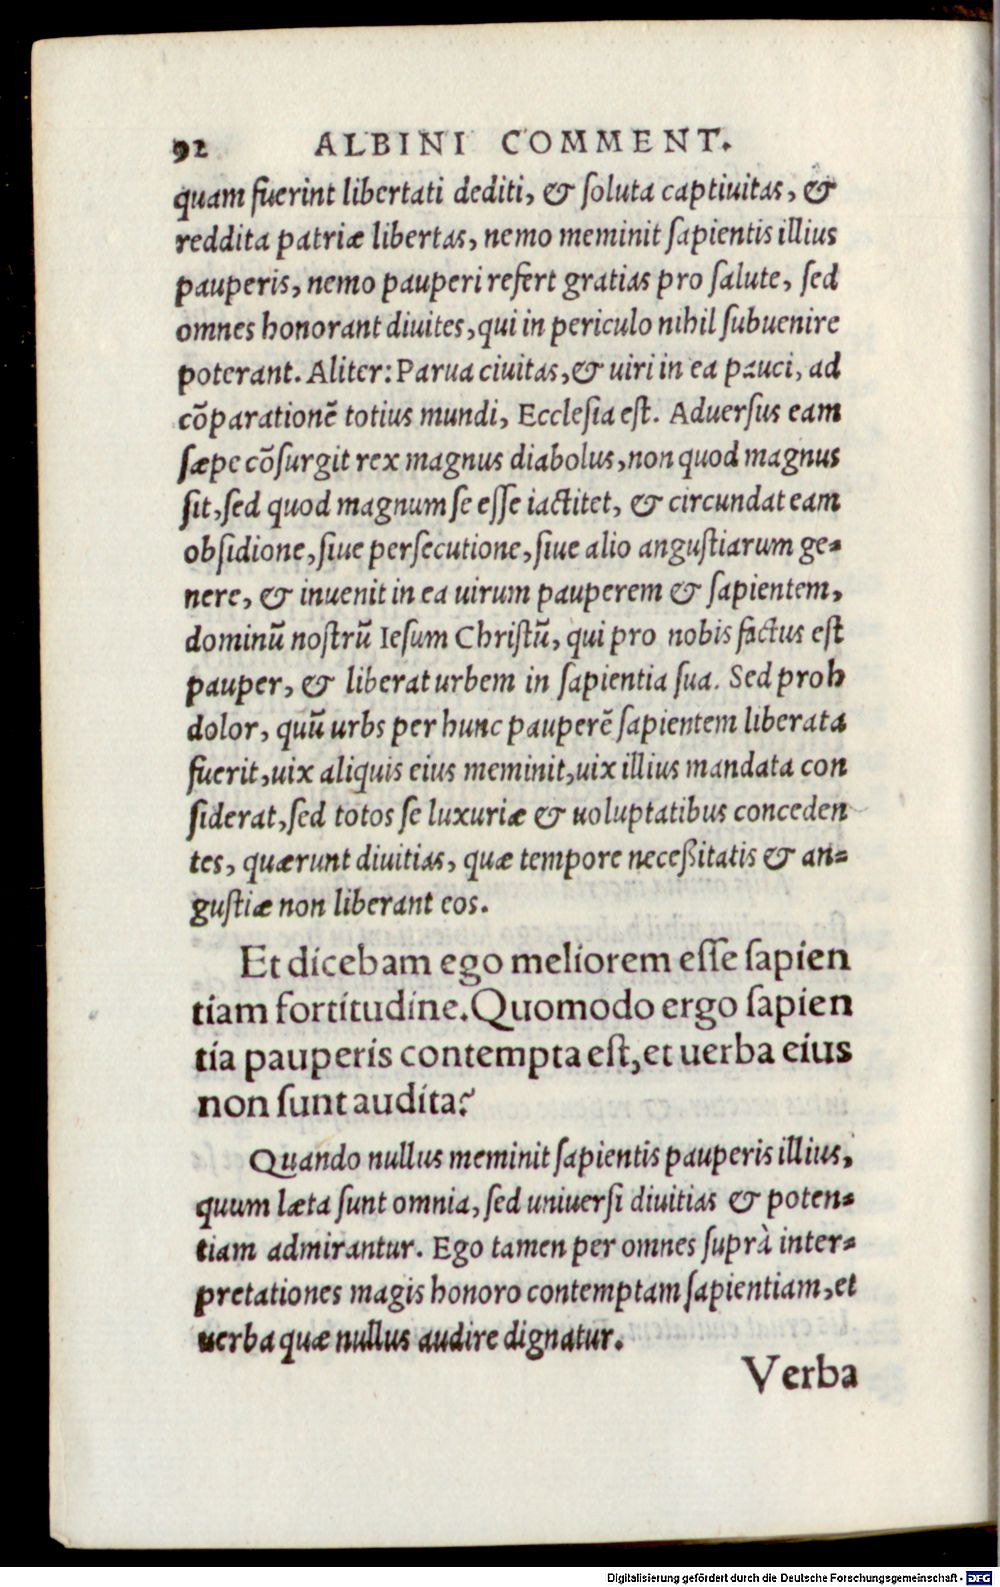 92 ALBINI COMMENT.
quam fuerint libertati dediti, & ſoluta captiuitas, &
reddita patriæ libertas, nemo meminit ſapientis illius
pauperis, nemo pauperi refert gratias pro ſalute, ſed
omnes honorant diuites, qui in periculo nihil ſubuenire
poterant. Aliter: Parua ciuitas, & uiri in ea pauci, ad
cõparationẽ totius mundi, Eccleſia eſt. Aduerſus eam
ſæpe cõſurgit rex magnus diabolus, non quod magnus
ſit, ſed quod magnum ſe eſſe iactitet, & circundat eam
obſidione, ſiue perſecutione, ſiue alio anguſtiarum ge-
nere, & inuenit in ea uirum pauperem & ſapientem,
dominũ noſtrũ Ieſum Chriſtũ, qui pro nobis factus eſt
pauper, & liberat urbem in ſapientia ſua. Sed proh
dolor, quũ urbs per hunc pauperẽ ſapientem liberata
fuerit, uix aliquis eius meminit, uix illius mandata con
ſiderat, ſed totos ſe luxuriæ & uoluptatibus conceden
tes, quærunt diuitias, quæ tempore neceßitatis & an-
guſtiæ non liberant eos.
Et dicebam ego meliorem eſſe ſapien
tiam fortitudine. Quomodo ergo ſapien
tia pauperis contempta eſt, et uerba eius
non ſunt audita?
Quando nullus meminit ſapientis pauperis illius,
quum læta ſunt omnia, ſed uniuerſi diuitias & poten-
tiam admirantur. Ego tamen per omnes ſuprà inter-
pretationes magis honoro contemptam ſapientiam, et
uerba quæ nullus audire dignatur.
Verba
Digitalisierung gefördert durch die Deutsche Forschungsgemeinschaft - DFG